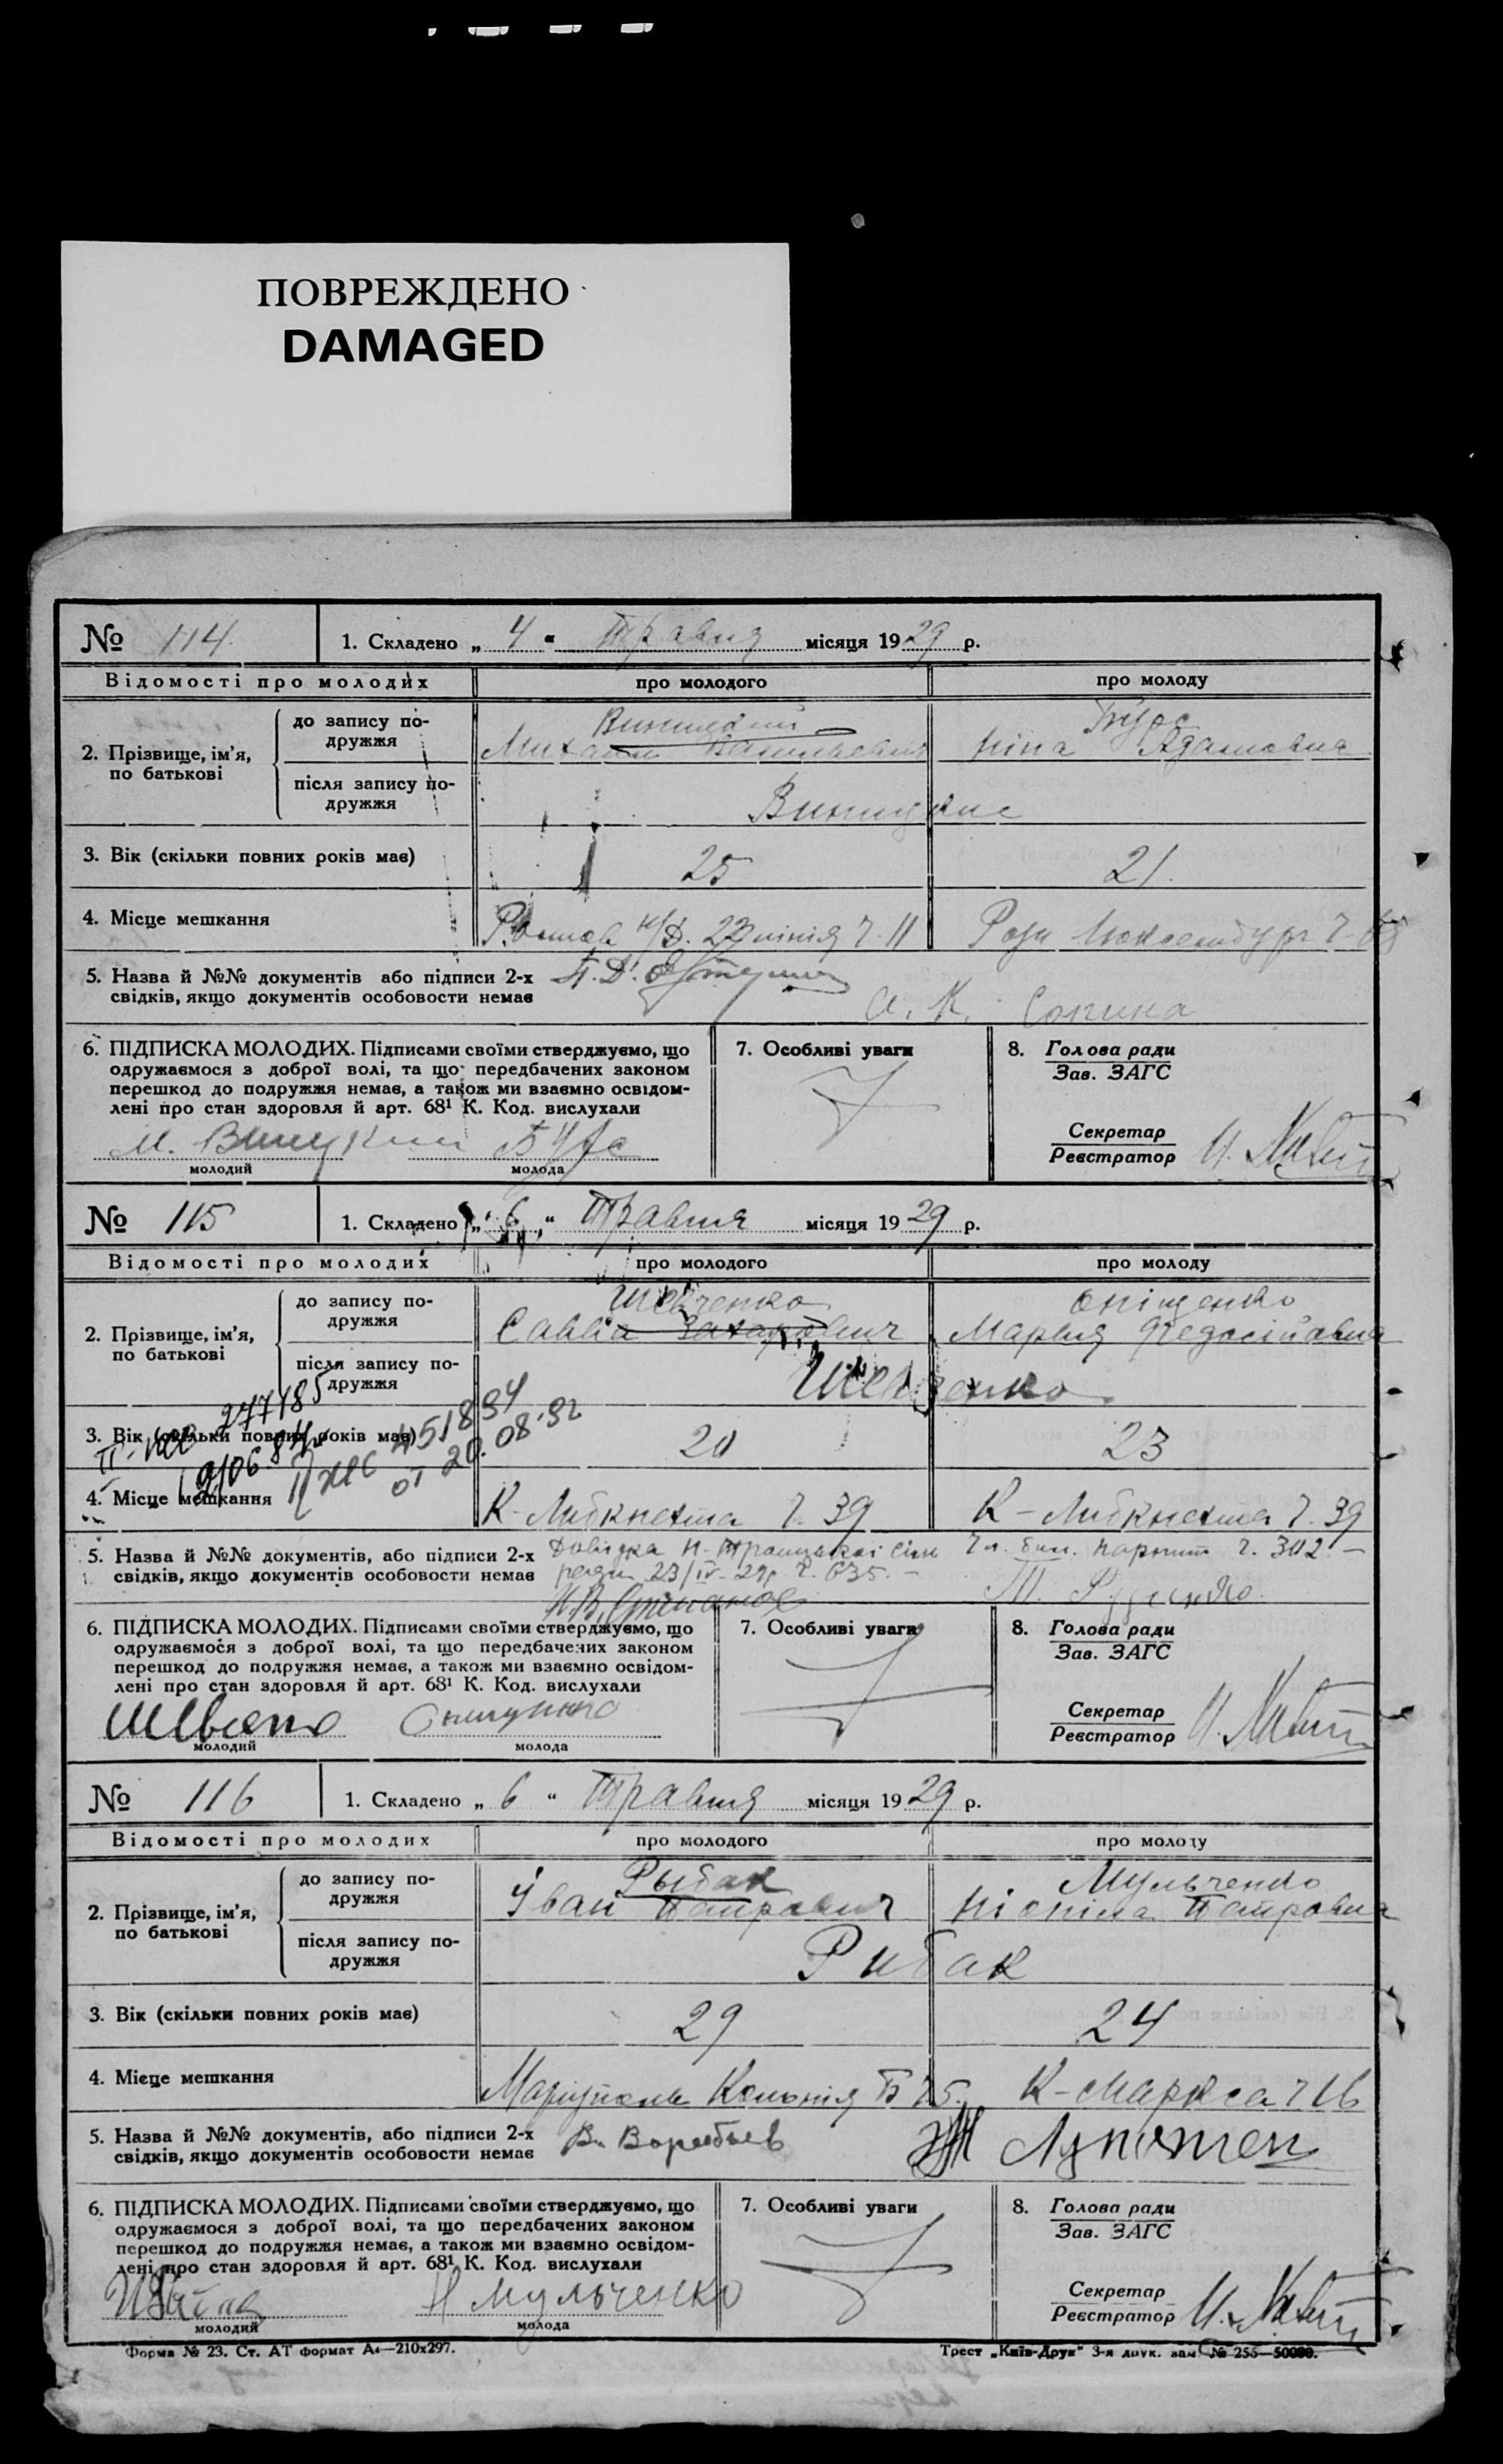 ПОВРЕЖДЕНО
DAMAGED
№ 114. 1. Складено „ 4 “ Травня місяця 1929 р.
Відомості про молодих про молодого про молоду
до запису по-
дружжя
2. Прізвище, ім’я,
по батькові
Михайл Васильевич Ніна Адамовна
після запису по-
дружжя
3. Вік (скільки повних років має) 25 21.
4. Місце мешкання Ростов н/Д. 22 лінія Рози Люксембург
5. Назва й №№ документів або підписи 2-х
свідків, якщо документів особовости немає
А. К. Сопина
6. ПІДПИСКА МОЛОДИХ. Підписами своїми стверджуємо, що
одружаємося з доброї волі, та що передбачених законом
перешкод до подружжя немає, а також ми взаємно освідом-
лені про стан здоровля й арт. 68¹ К. Код. вислухали
молодий молода
7. Особливі уваги
8. Голова ради
Зав. ЗАГС
Секретар
Реєстратор
№ 115 1. Складено „ 6 “ Травня місяця 1929 р.
Відомості про молодих про молодого про молоду
до запису по-
дружжя
Шевченко Оніщенко
2. Прізвище, ім’я,
по батькові
Савва Захарович Мария Федосіївна
після запису по-
дружжя
Шевченко
3. Вік (скільки повних років має) 20 23
277185
451894
от 20.08.92
4. Місце мешкання К-Либкнехта ч. 39 К-Либкнехта ч. 39
5. Назва й №№ документів, або підписи 2-х Довідка Н-Троицькоі сіль Чл. бил. Ч. 302 –
свідків, якщо документів особовости немає ради 23/IV-29р. Ч. 635. –
Степанов
6. ПІДПИСКА МОЛОДИХ. Підписами своїми стверджуємо, що
одружаємося з доброї волі, та що передбачених законом
перешкод до подружжя немає, а також ми взаємно освідом-
лені про стан здоровля й арт. 68¹ К. Код. вислухали
молодий молода
7. Особливі уваги
8. Голова ради
Зав. ЗАГС
Секретар
Реєстратор
№ 116 1. Складено „ 6 “ Травня місяця 1929 р.
Відомості про молодих про молодого про молоду
до запису по-
дружжя
Рыбак Мульченко
2. Прізвище, ім’я,
по батькові
Іван Петрович Петровна
після запису по-
дружжя
Рибак
3. Вік (скільки повних років має) 29 24
4. Місце мешкання Маріуполь Колонія Б К-Маркса
5. Назва й №№ документів, або підписи 2-х
свідків, якщо документів особовости немає
Воробьев
6. ПІДПИСКА МОЛОДИХ. Підписами своїми стверджуємо, що
одружаємося з доброї волі, та що передбачених законом
перешкод до подружжя немає, а також ми взаємно освідом-
лені про стан здоровля й арт. 68¹ К. Код. вислухали
Н Мульченко
молодий молода
7. Особливі уваги
8. Голова ради
Зав. ЗАГС
Секретар
Реєстратор
Форма № 23. Ст. АТ формат А₄—210х297. Трест „Київ-Друк“ 3-я друк. зам. № 255—50000.